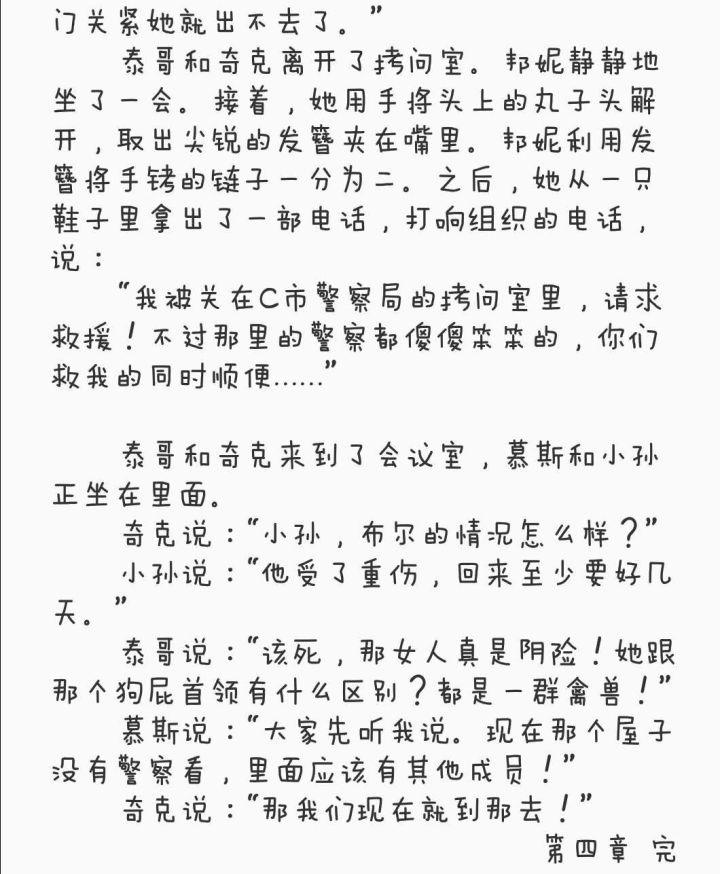 门关紧她就出不去了。”
泰哥和奇克离开了拷问室。邦妮静静地
坐了一会。接着，她用手将头上的丸子头解
开，取出尖锐的发簪夹在嘴里。邦妮利用发
簪将手铐的链子一分为二。之后，她从一只
鞋子里拿出了一部电话，打响组织的电话，
说：
“我被关在C市警察局的拷问室里，请求
救援！不过那里的警察都傻傻笨笨的，你们
救我的同时顺便……”
泰哥和奇克来到了会议室，慕斯和小孙
正坐在里面。
奇克说：“小孙，布尔的情况怎么样？”
小孙说：“他受了重伤，回来至少要好几
天。”
泰哥说：“该死，那女人真是阴险！她跟
那个狗屁首领有什么区别？都是一群禽兽！”
慕斯说：“大家先听我说。现在那个屋子
没有警察看，里面应该有其他成员！”
奇克说：“那我们现在就到那去！”
第四章 完